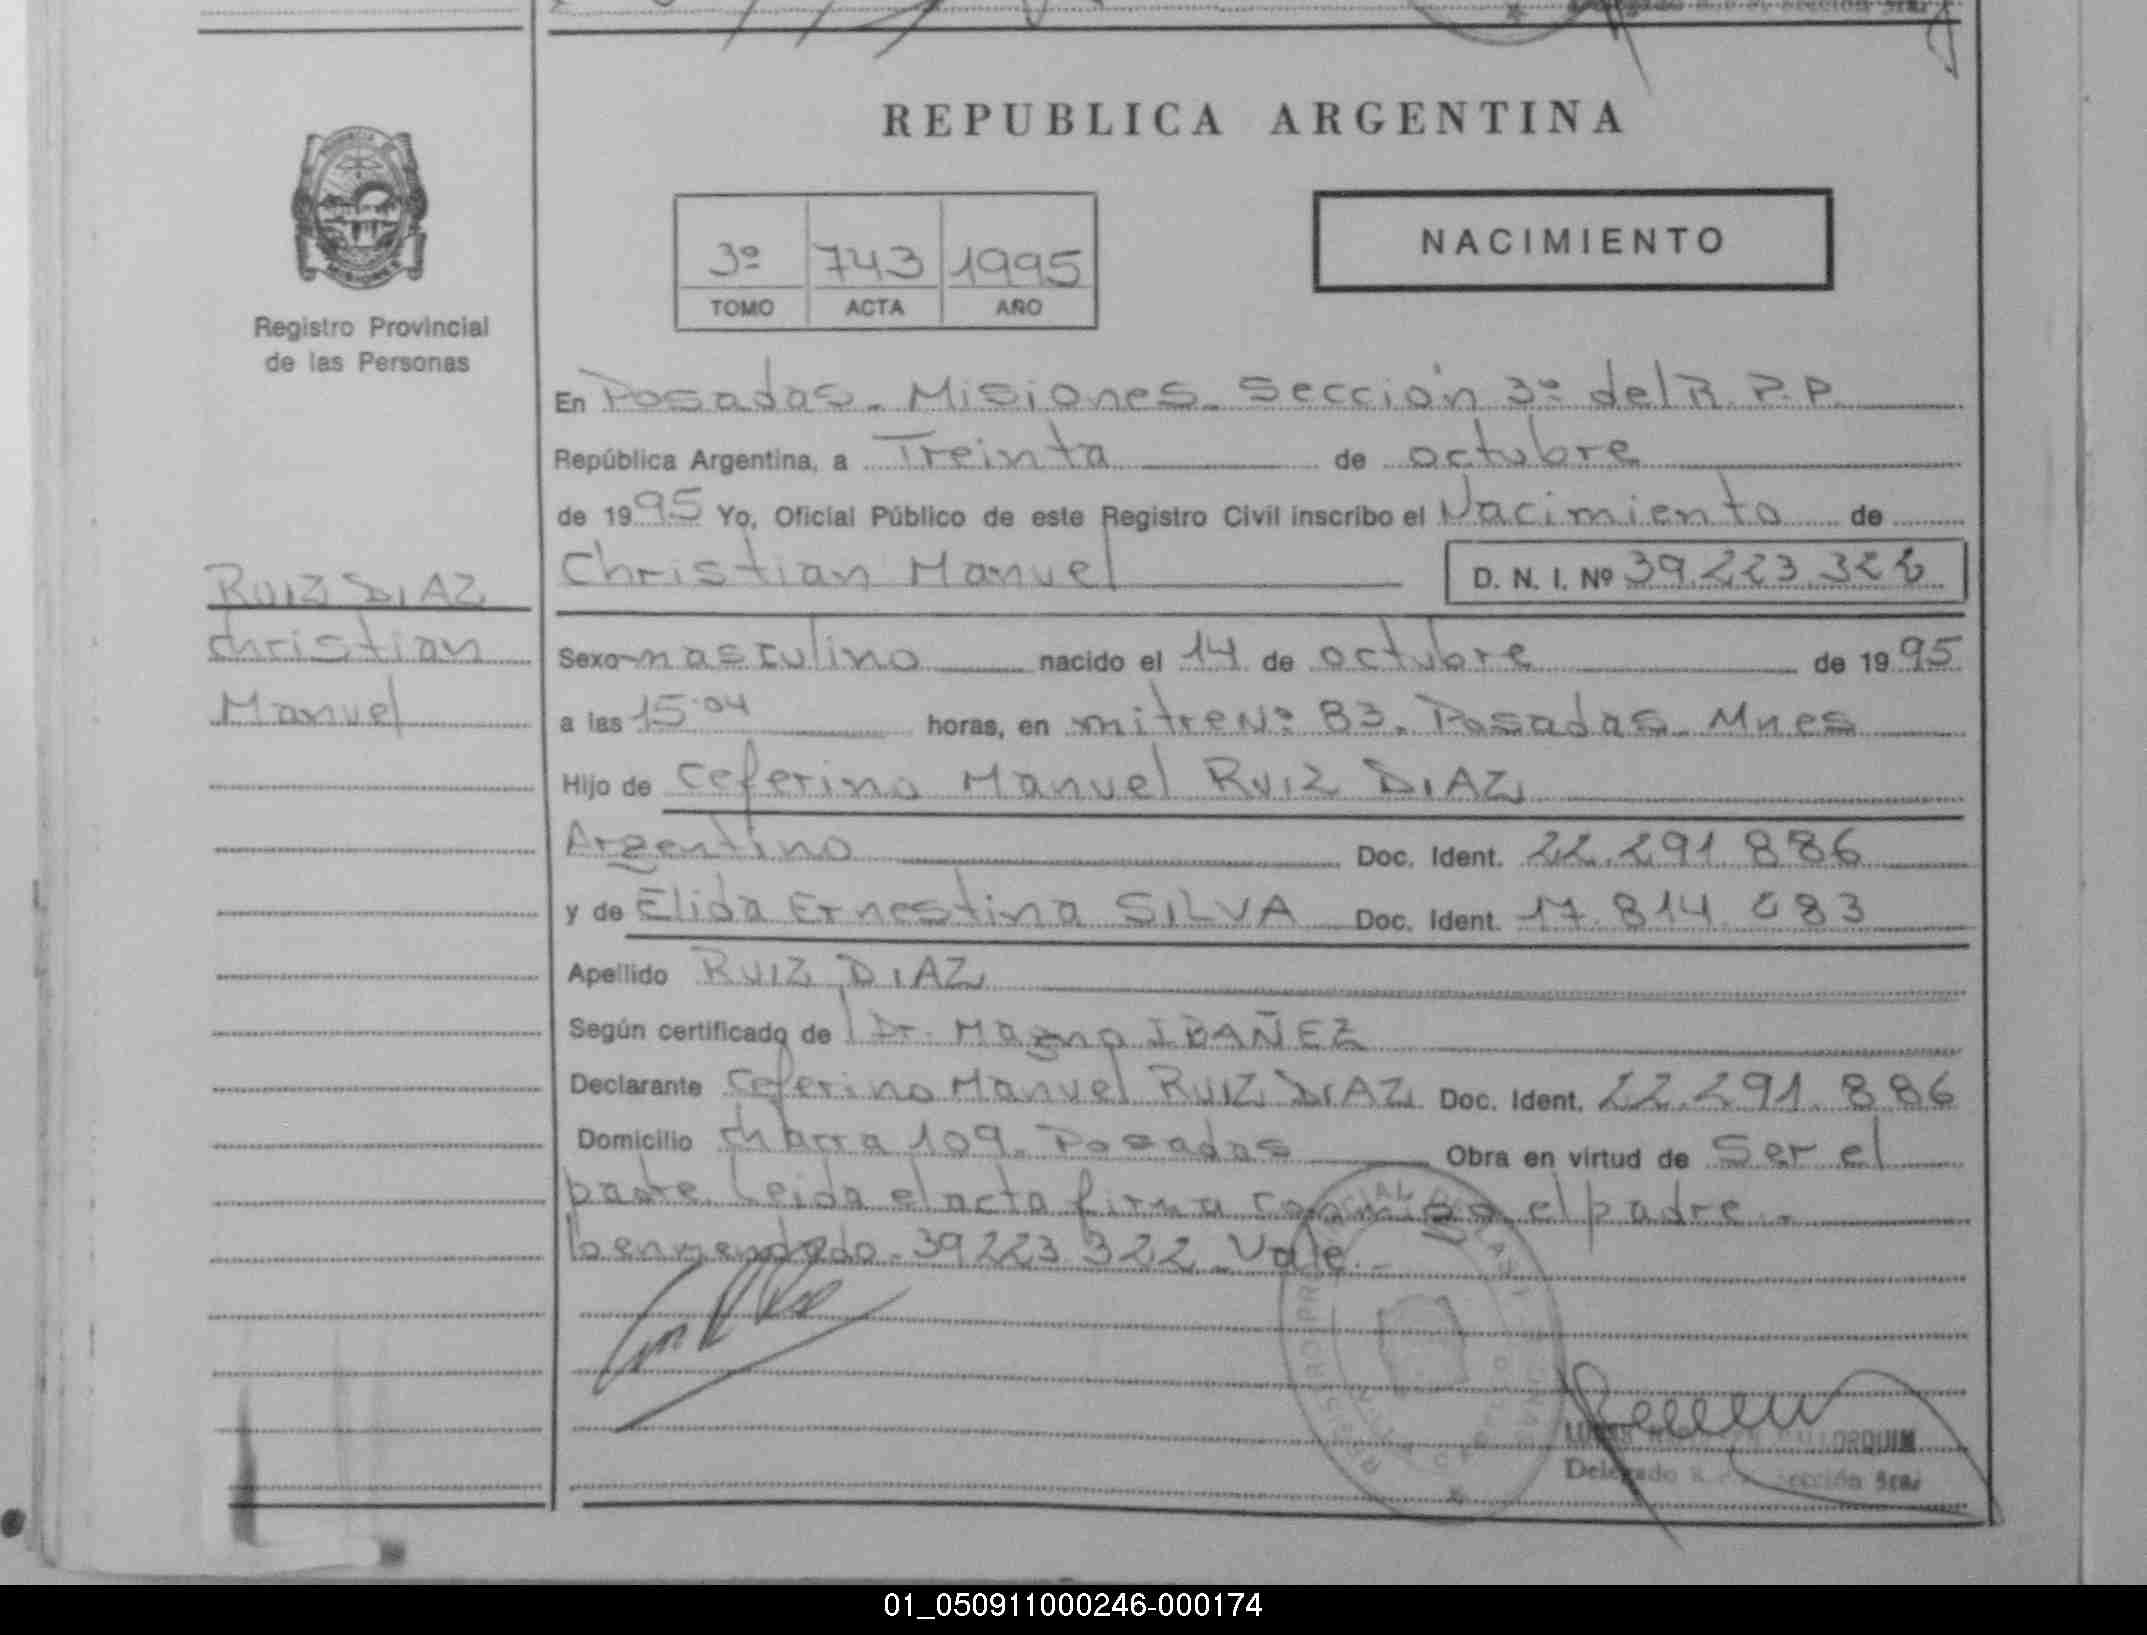 REPUBLICA ARGENTINA
3º 743 1995
TOMO ACTA AÑO
NACIMIENTO
Registro Provincial
de las Personas
En Posadas - Misiones - Sección 3º del R. P. P.
República Argentina, a Treinta de octubre
de 1995 Yo, Oficial Público de este Registro Civil inscribo el Nacimiento de
Christian Manuel D. N. I. Nº 39.223.322
RUIZ DIAZ
Christian
Manuel
Sexo masculino nacido el 14 de octubre de 1995
a las 15:04 horas, en mitre Nº 83. Posadas - Mnes
Hijo de Ceferino Manuel RUIZ DIAZ
Argentino Doc. Ident. 22.291.886
y de Elida Ernestina SILVA Doc. Ident. 17.814.083
Apellido RUIZ DIAZ
Según certificado de Dr. Magno IBAÑEZ
Declarante Ceferino Manuel RUIZ DIAZ Doc. Ident. 22.291.886
Domicilio chacra 109. Posadas Obra en virtud de Ser el
padre. Leida el acta firma conmigo el padre.-
lo enmendado - 39223322 - Vale.-
Delegado Sección 3ra.
01_050911000246-000174